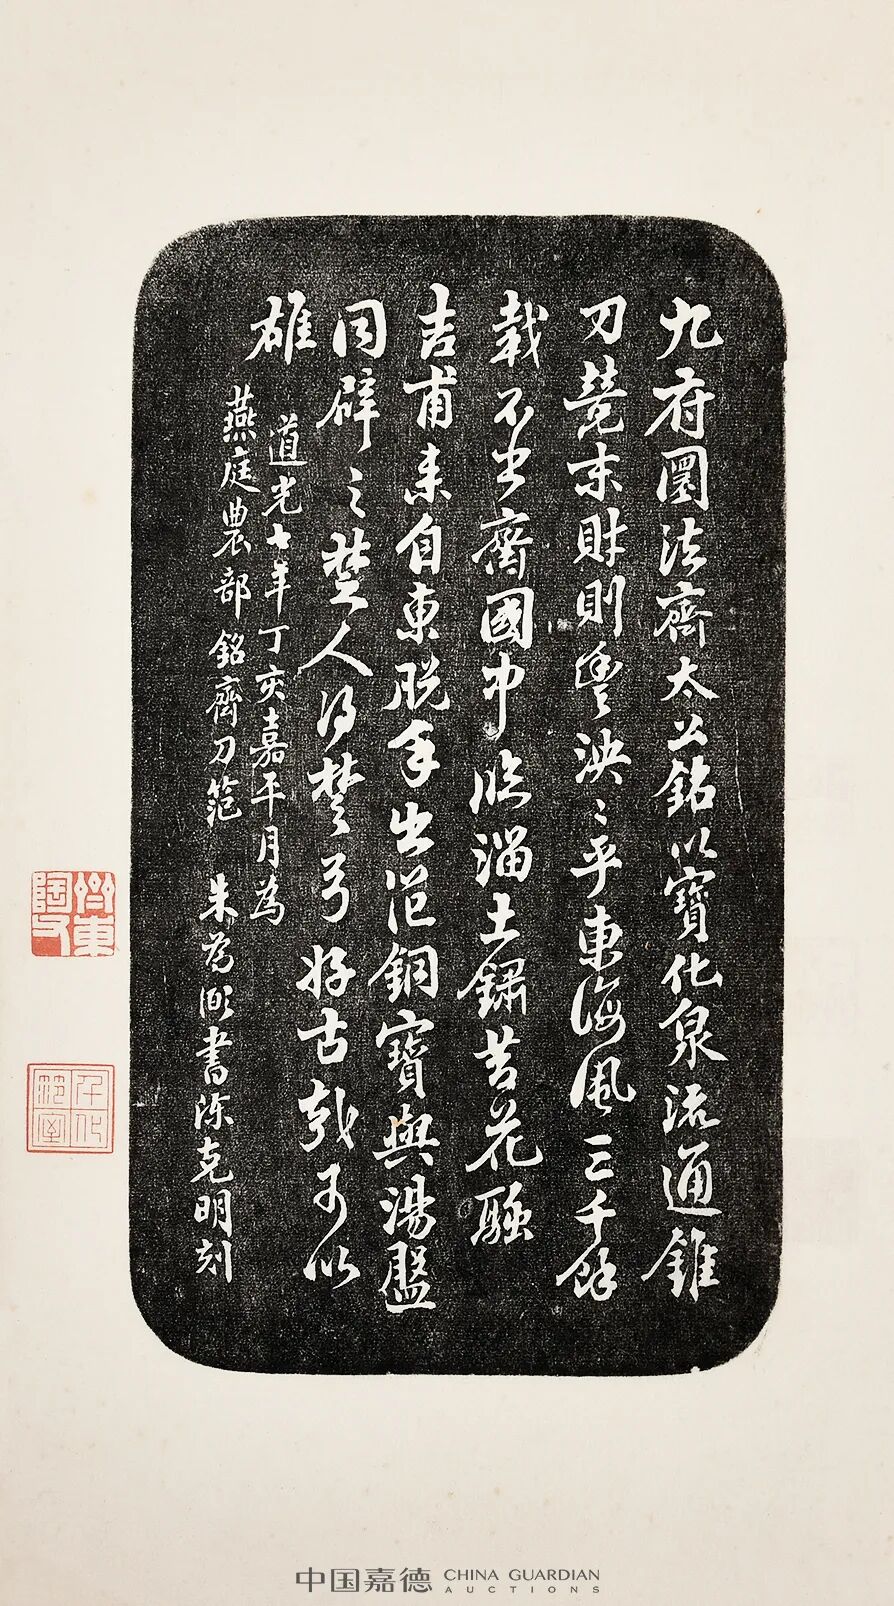 九府圜法齊太公銘以寶化泉流通錐
刀競末財則豐泱〻乎東海風三千餘
載不出齊國中臨淄土鏽苔花融
吉甫來自東脫手出范銅寶與湯盤
同辟之楚人得楚弓好古哉可以
雄
道光七年丁亥嘉平月為
燕庭農部銘齊刀笵 朱為弼書陳克明刻
中国嘉德 CHINA GUARDIAN
AUCTIONS